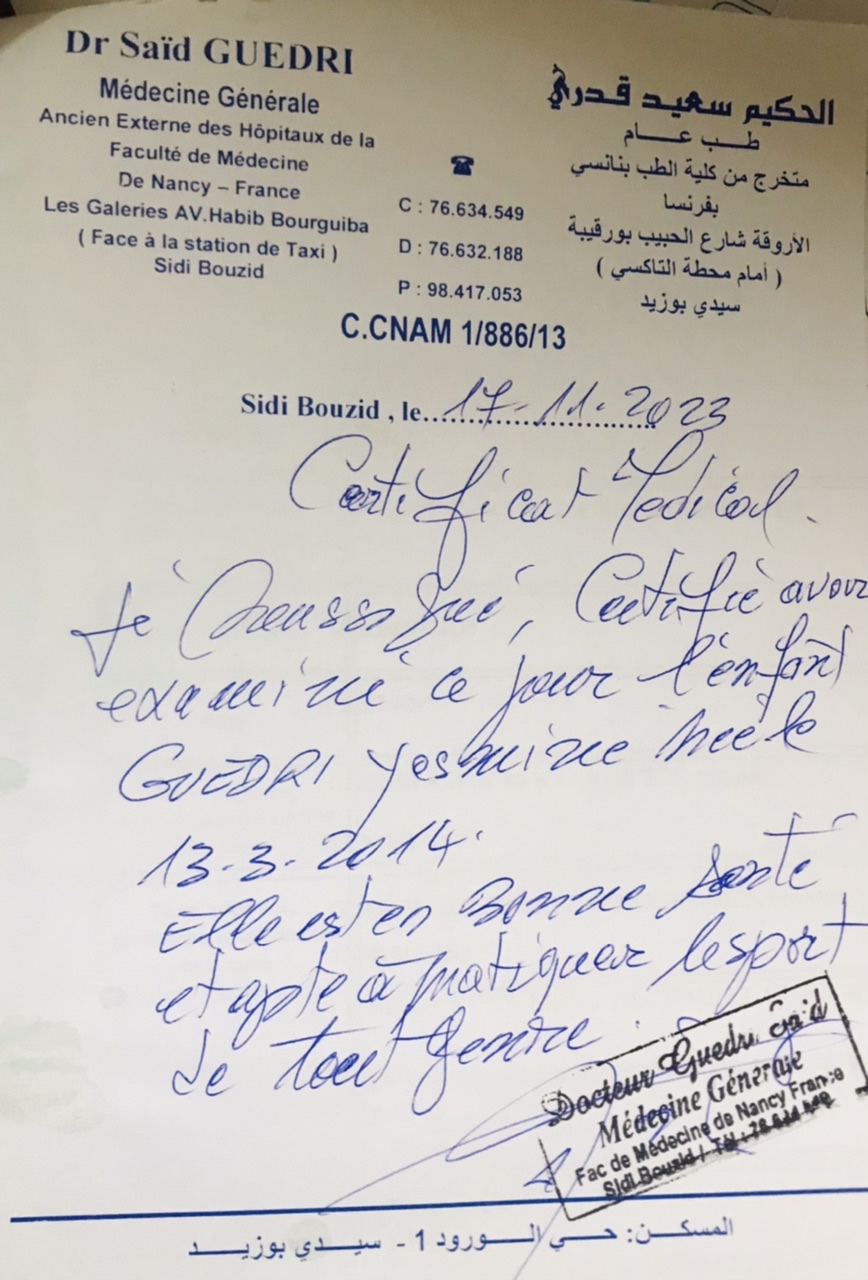 Dr Saïd GUEDRI
Médecine Générale
Ancien Externe des Hôpitaux de la
Faculté de Médecine
De Nancy – France
Les Galeries AV.Habib Bourguiba
( Face à la station de Taxi )
Sidi Bouzid
☎
C : 76.634.549
D : 76.632.188
P : 98.417.053
الحكيم سعيد قدري
طب عام
متخرج من كلية الطب بنانسي
بفرنسا
الأروقة شارع الحبيب بورقيبة
( أمام محطة التاكسي )
سيدي بوزيد
C.CNAM 1/886/13
Sidi Bouzid , le 17-11-2023
Certificat Medical.
Je Soussigné, Certifie avoir
examiné ce jour l'enfant
GUEDRI Yesmine née le
13-3-2014.
Elle est en Bonne santé
et apte à pratiquer le sport
de tout genre.
Docteur Guedri Said
Médecine Génerale
Fac de Médecine de Nancy France
Sidi Bouzid / Tél :
المسكن: حي الورود 1 - سيدي بوزيد